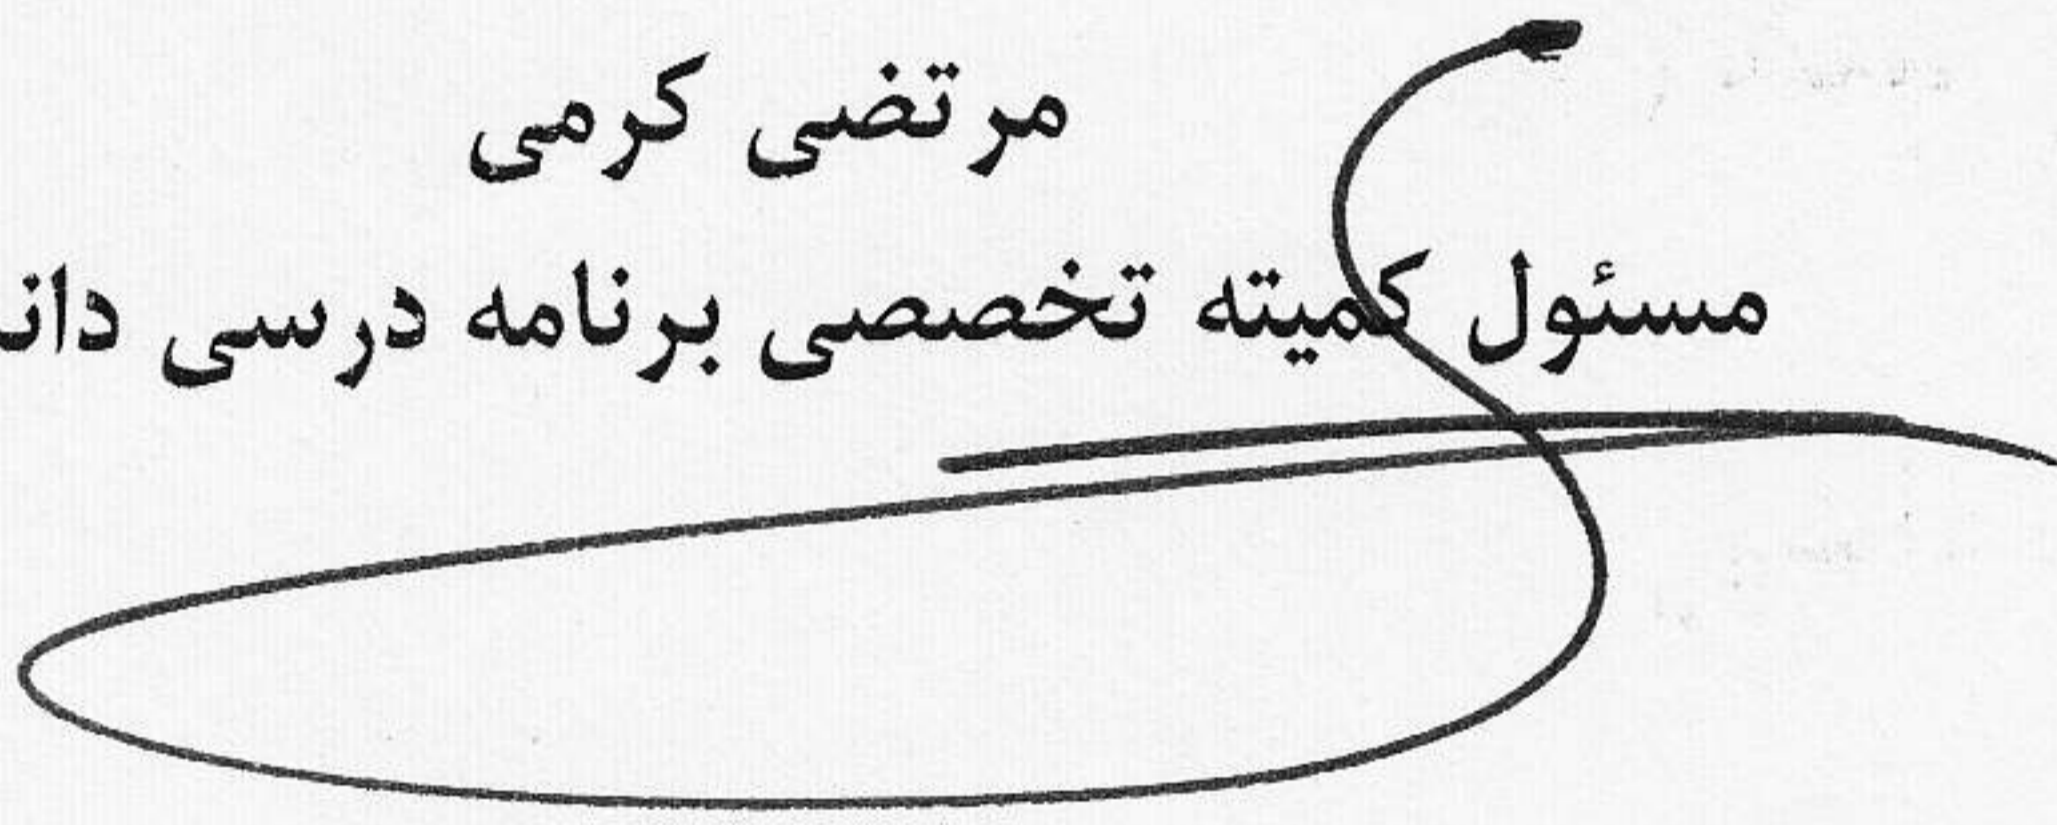 مرتضی کرمی
مسئول کمیته تخصصی برنامه درسی